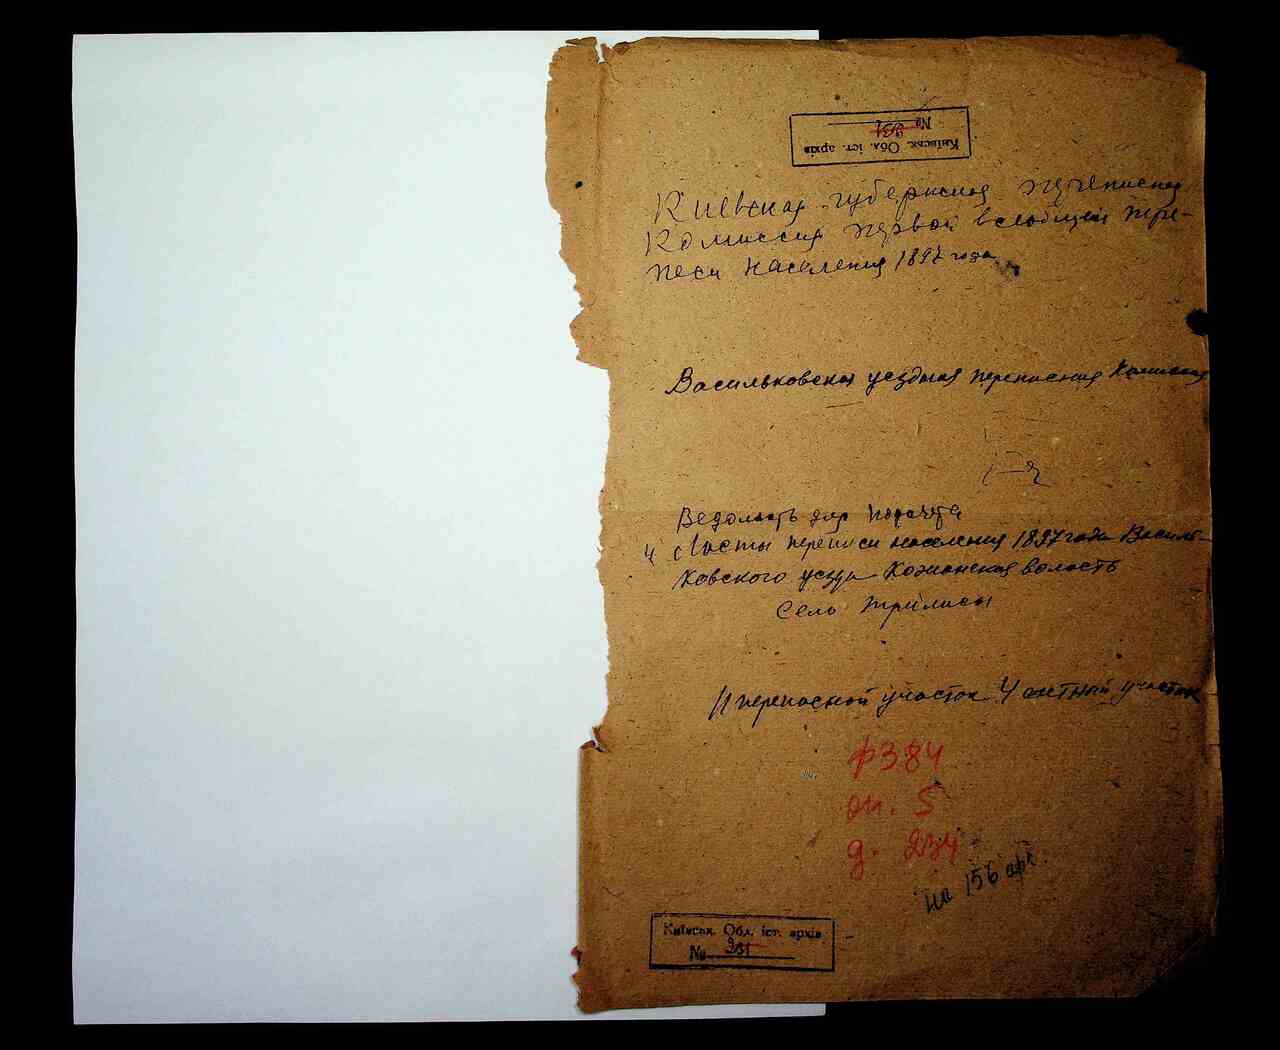 Київськ. Обл. іст. архів
№ 231
Киевская губернская переписная
Комиссия первой всеобщей пере-
писи населения 1897 года
Васильковская уездная переписная Комиссия
Ведомость для подсчета
и Листы переписи населения 1897 года Василь-
ковского уезда Кожанская волость
Село Трилисы
II переписной участок 4 счетный участок
ф 384
оп. 5
д. 234
на 156 арк.
Київськ. Обл. іст. архів
№ 231